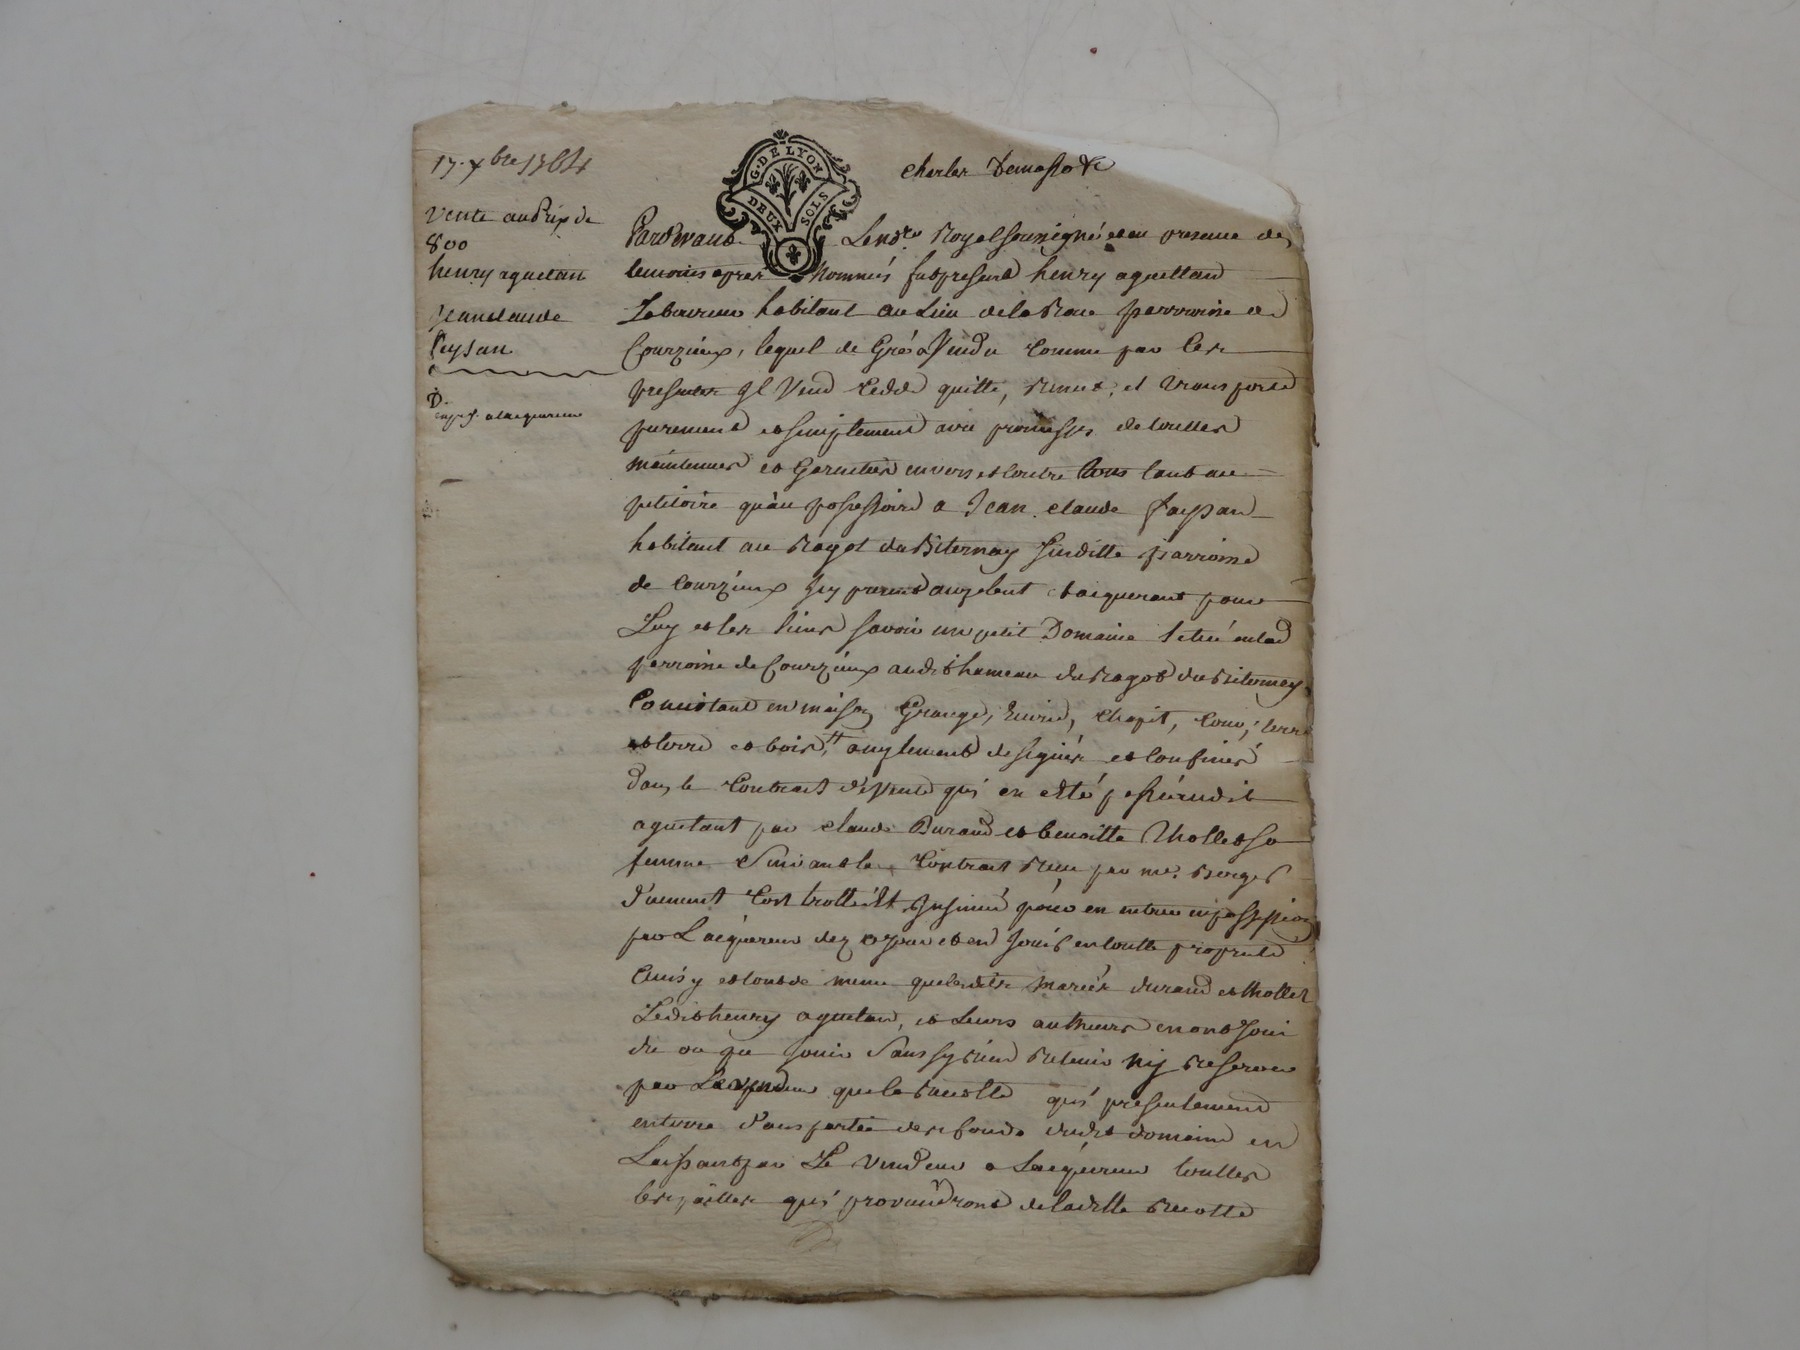 17. xbre 1764
G. DE LYON
DEUX SOLS
charles
vente au Prix de
800
henry aguetan
Jean claude
D.
Pardevant Le no.re Royal soussigné et en presence des
temoins apres Nommés fut present henry aguettant
Laboureur habitant au Lieu de la Roue parroisse de
Courzieux, lequel de Gré a Vendu comme par les
presentes Il Vend cedde quitte, Remet, et transporte
purement et simplement avec promesses de touttes
maintenues et Garenties envers et contre tous tant au
petitoire qu'au possessoire a Jean claude
habitant au susditte parroisse
de Courzieux Icy present acceptant et aquerant pour
Luy et les siens savoir un petit Domaine situé en lad
parroisse de Courzieux audit hameau du
Consistant en maison, Grange, Ecurie, chapit, Cour, terre
et bois, amplement designés et confinés
dans le Contrait de Vente qui en a été passé audit
aguetant par claude Durand et benoitte thollet sa
femme Suivant le Contrait Reçu par me.
d'uement Controllé et Insinué pour en entrer en possession
par L'aquereur dez et en Jouir en toutte proprieté
tout de meme que lesdits mariés durand et thollet
Ledit henry aguetant, et Leurs autheurs en ont Joui
du ou pu Jouir Sans sy Rien Retenir Ny Reserver
par Le vendeur que la Recolte qui presentement
en terre dans partie des fonds dudit domaine en
Laissant par Le Vendeur a L'aquereur touttes
les pailles qui proviendront de laditte Recotte